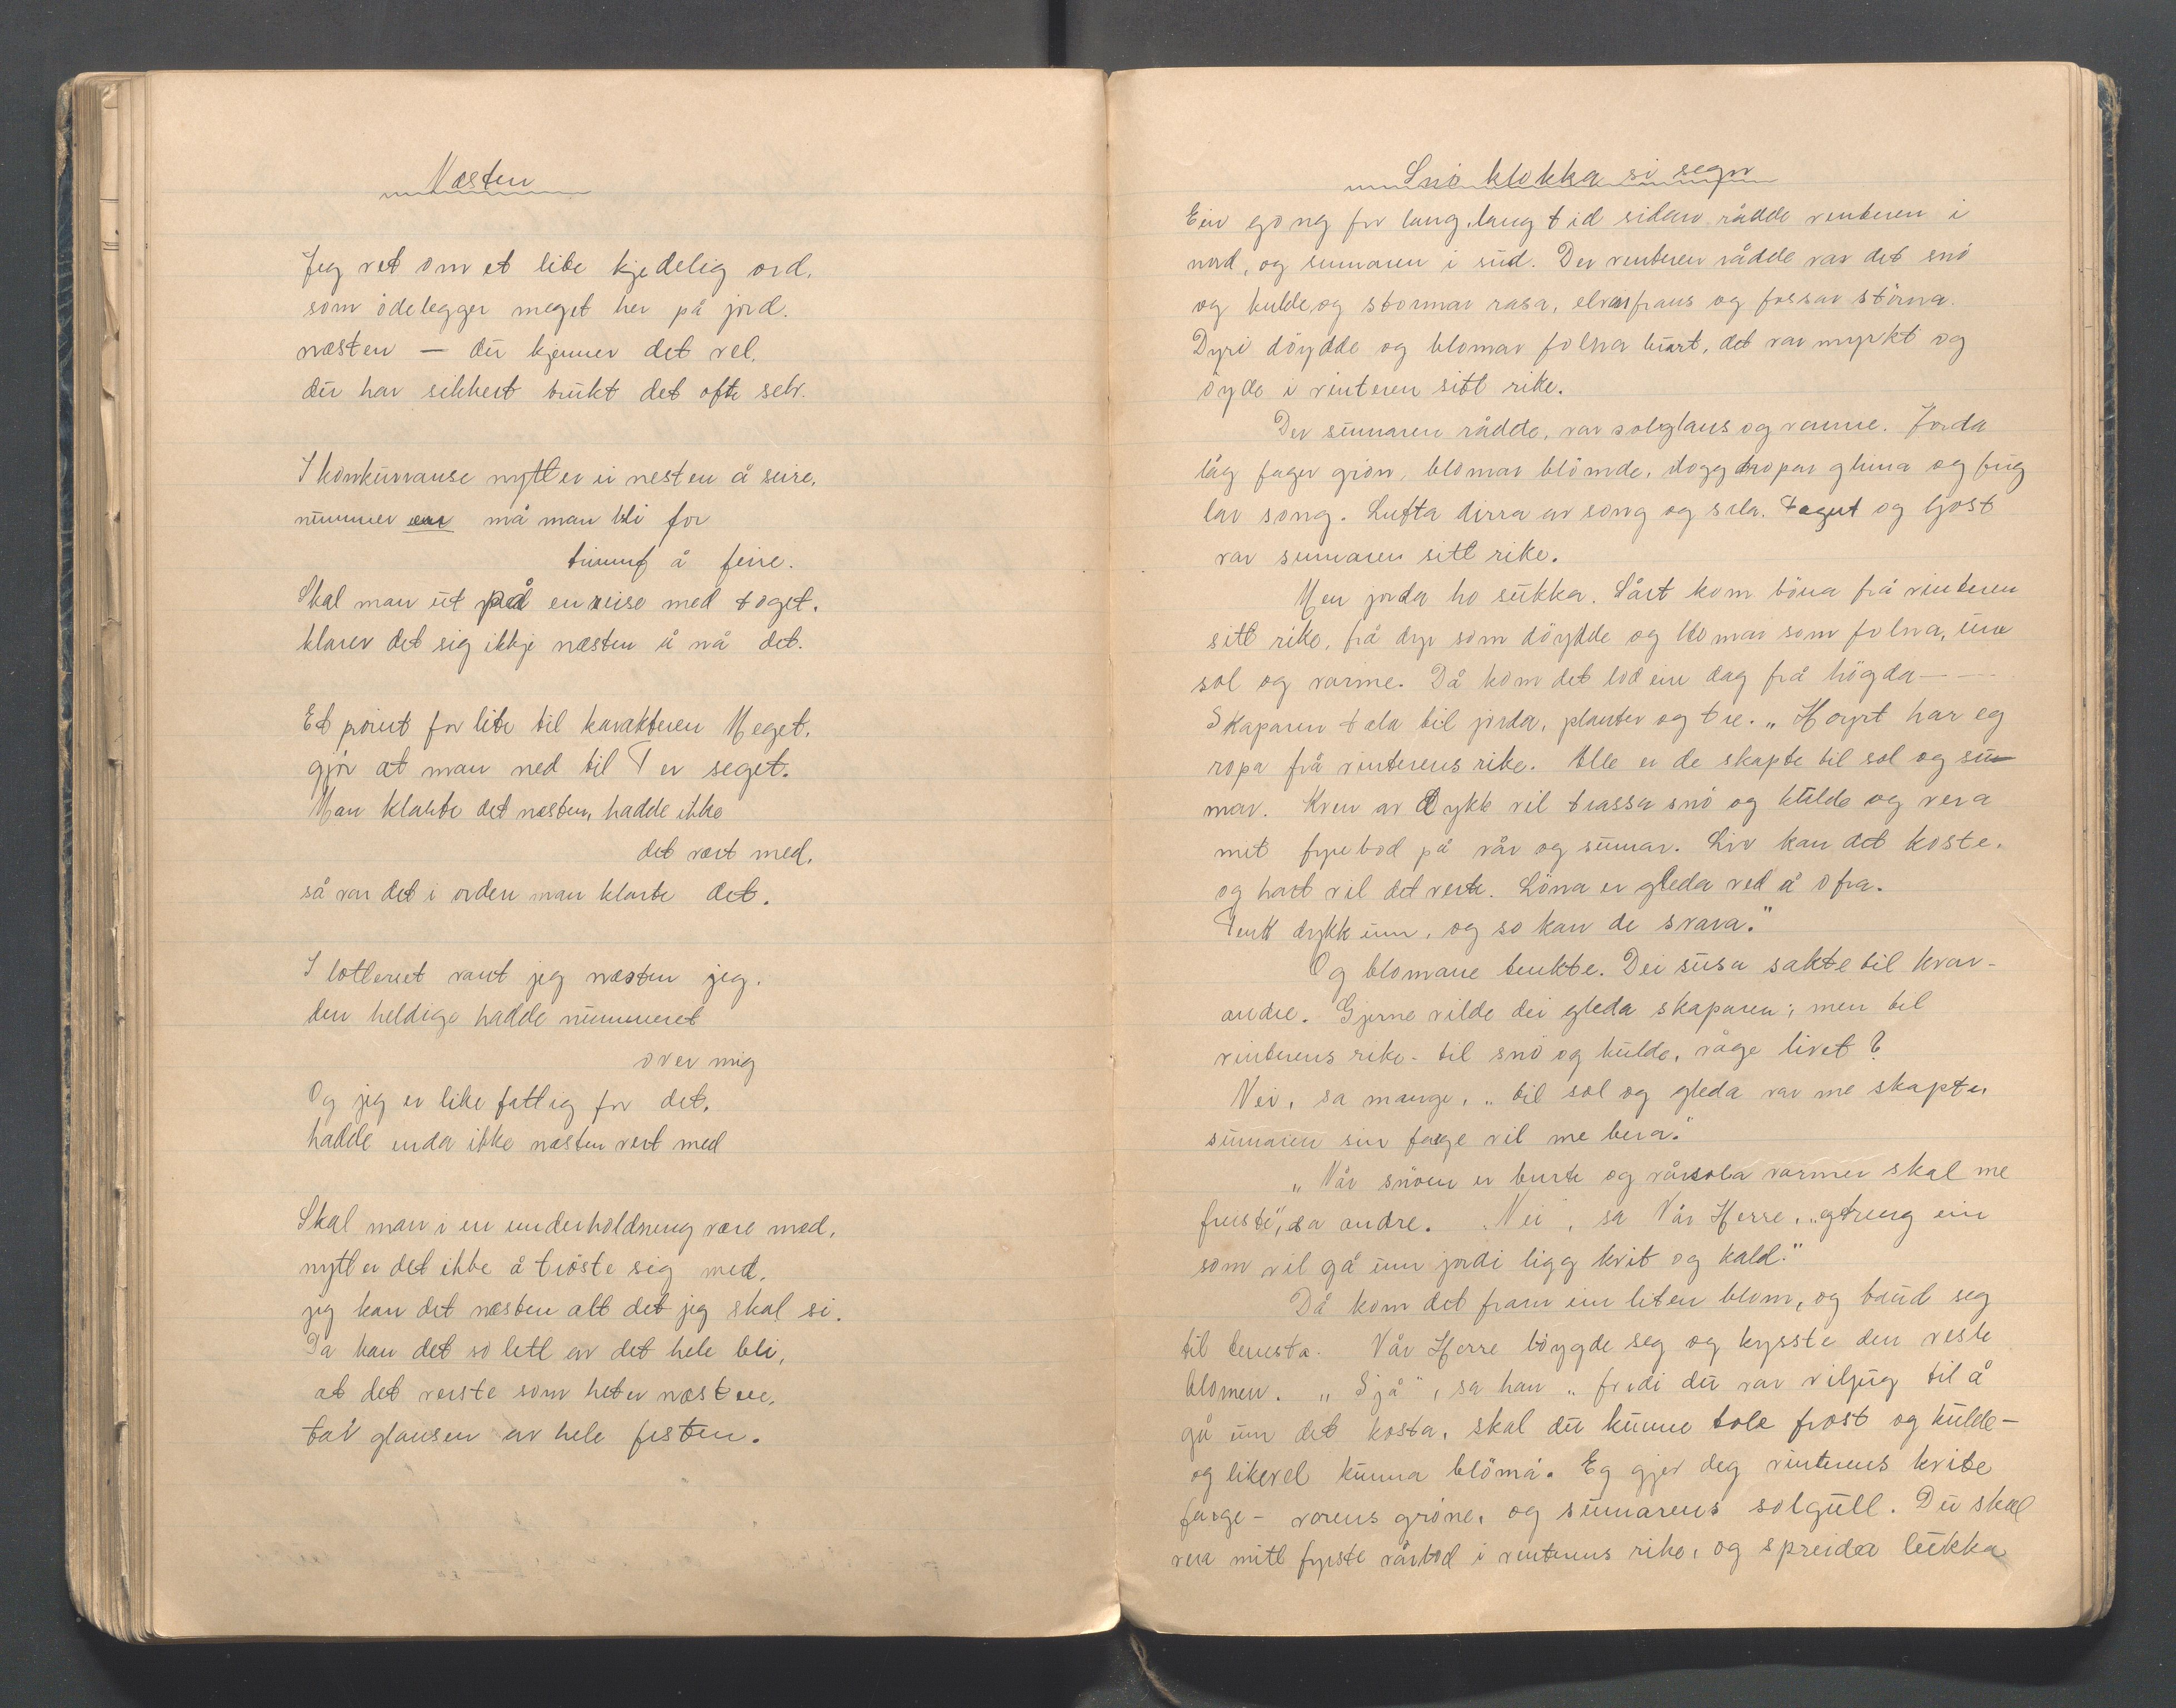 Næsten
Jeg vet om et lite kjedelig ord,
som ödelegger meget her på jord.
næsten — du kjenner det vel.
du har sikkert brukt det ofte selv.
I konkurranse nytter ei nesten å seire,
nummer en må man bli for
triumf å feire.
Skal man ut på en reise med toget.
klarer det sig ikkje næsten å nå det.
Et point for lite til karakteren Meget,
gjör at man ned til T er seget.
Man klarte det næsten, hadde ikke
det vært med,
så var det i orden man klarte det.
I lotteriet vant jeg næsten jeg.
den heldige hadde nummeret
over mig
Og jeg er like fattig for det,
hadde enda ikke næsten vert med
Skal man i en underholdning være med,
nytter det ikke å tröste sig med,
jeg kan det næsten alt det jeg skal si.
Da kan det so lett av det hele bli,
at det verste som heter næsten,
tar glansen av hele festen.
Snöklokka si segn
Ein gong for lang, lang tid sidan rådde venteren i
nord, og sumaren i sud. Der venteren rådde var det snö
og kulde, og stormar rasa, elvar fraus og fossar störna.
Dyri döydde og blomar folna burt, det var myrkt og
öyde i vinteren sitt rike.
Der sumaren rådde, var solglans og varme. Jorda
låg fager grön, blomar blömde, doggdropar glima og fug
lar song. Lufta dirra av song og sæla. Fagert og ljost
var sumaren sitt rike.
Men jorda ho sukka. Sårt kom böna frå vinteren
sitt rike, frå dyr som döydde og blomar som folna, um
sol og varme. Då kom det bod ein dag frå högda — —
Skaparen tala til jorda, planter og tre. „Höyrt har eg
ropa frå vinterens rike. Alle er de skapte til sol og su-
mar. Kven av dykk vil trassa snö og kulde og vera
mit fyrebod på vår og sumar. Liv kan det koste,
og hart vil det verte. Löna er gleda ved å ofra.
Tenk dykk um, og so kan de svara."
Og blomane tenkte. Dei susa sakte til kvar-
andre. Gjerne vilde dei gleda skaparen; men til
vinterens rike - til snö og kulde, våge livet?
Nei, sa mange, „til sol og gleda var me skapte,
sumaren sin farge vil me bera."
„Når snöen er burte og vårsola varmer skal me
freiste", sa andre. „Nei", sa Vår Herre, „eg treng ein
som vil gå um jordi ligg kvit og kald."
Då kom det fram ein liten blom, og baud seg
til tenesta. Vår Herre böygde seg og kysste den vesle
blomen. „Sjå", sa han „fordi du var viljug til å
gå um det kosta, skal du kunne tole frost og kulde -
og likevel kunna blöma. Eg gjev deg vinterens kvite
farge - vårens gröne, og sumarens solgull. Du skal
vera mitt fyrste vårbod i venterens rike, og spreida lukka